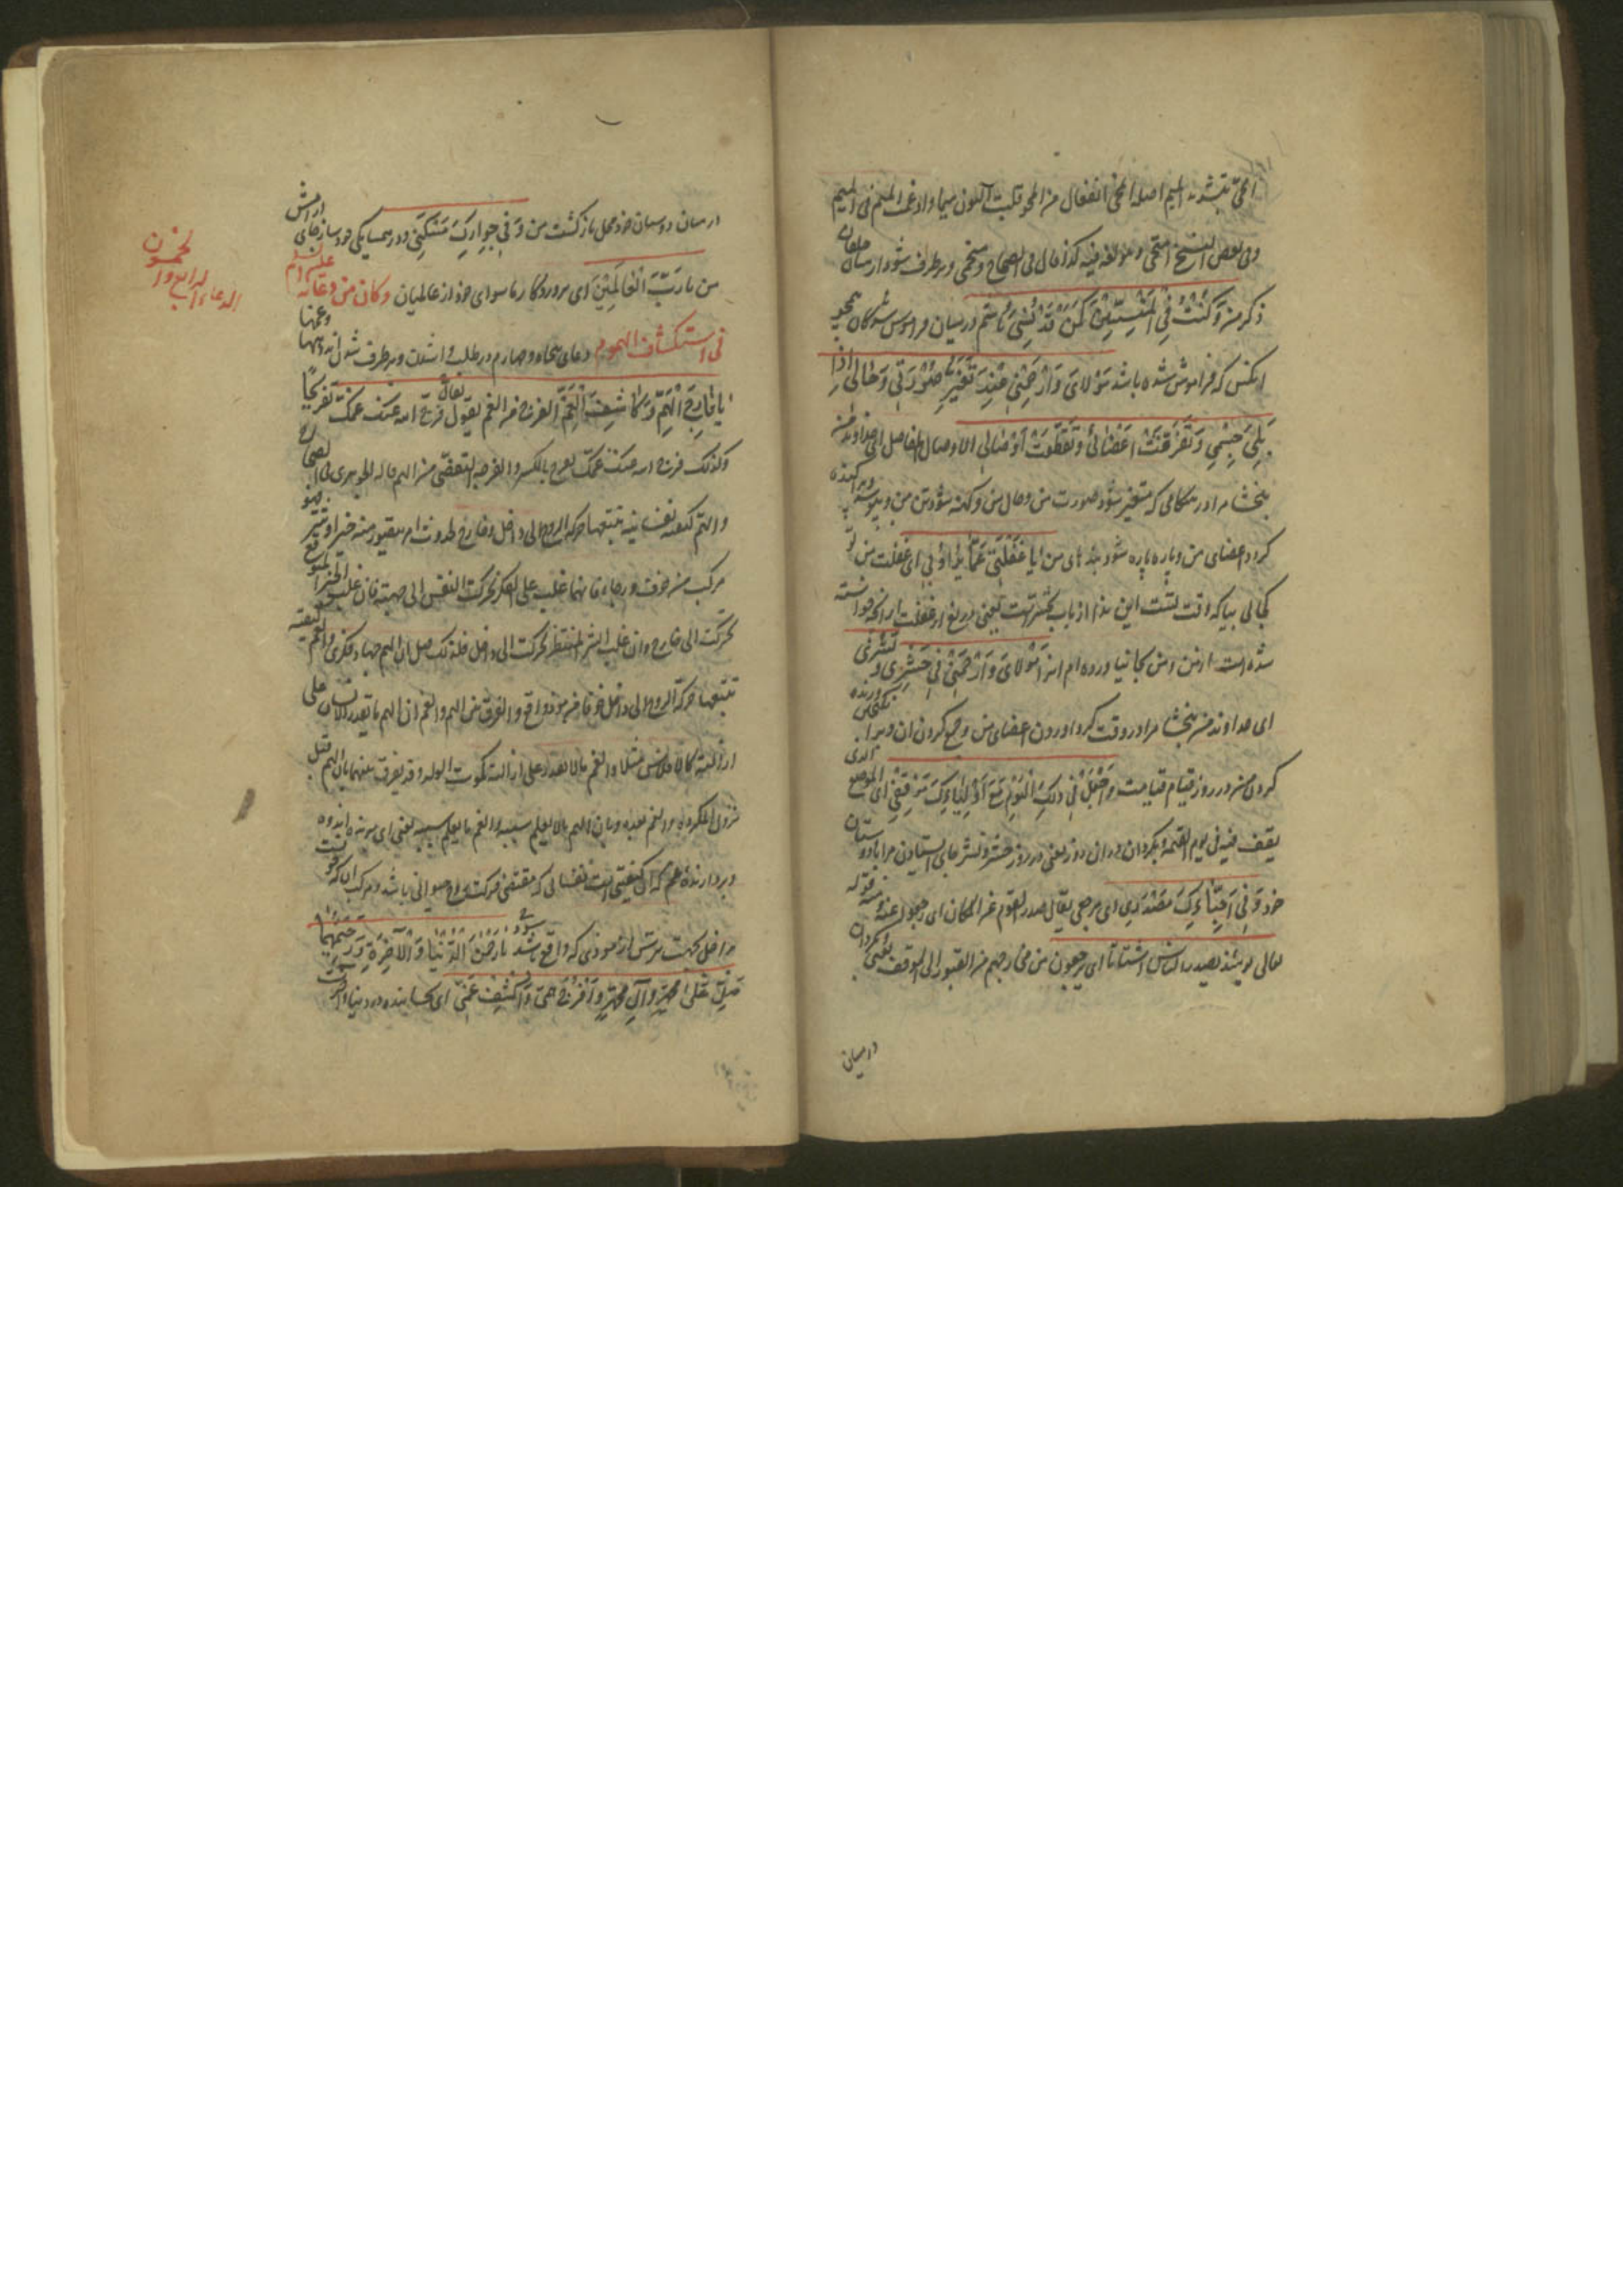 امّحی بتشدید المیم اصله انمحی انفعال من المحو قلبت النون میما و ادغمت المیم فی المیم
وفی بعض النسخ امتحی و هو لغة فیه کذا قال فی الصحاح و منمحی و برطرف شود از میان
ذکر من وَکُنْتُ فِی الْمَنْسِیّینَ کَمَنْ قَدْ نُسِیَ باشم در میان فراموش شدگان همچو
انکس که فراموش شده باشد مَوْلایَ وَارْحَمْنی عِنْدَ تَغَیُّرِ صُورَتی وَحالی اِذا
بَلِیَ جِسْمی وَتَفَرَّقَتْ اَعْضائی وَتَقَطَّعَتْ اَوْصالی الاوصال المفاصل ای خداوند من
بخشا مرا در هنگامی که متغیر شود صورت من و حال من و کهنه شود تن من و پراکنده
کردد اعضای من و پاره پاره شود بندهای من یا غَفْلَتی عَمّا یُرادُ بی ای غفلت من تو
کجایی بیا که وقت تست این ندا از باب تحسّر است یعنی دریغ از غفلت از آنچه خواسته
شده است از من مَوْلایَ وَارْحَمْنی فی حَشْری وَنَشْری
ای خداوند من بخشا مرا در وقت کرد اوردن اعضای من و جمع کردن ان و
کردن من در روز قیام قیامت وَاجْعَلْ فی ذلِکَ الْیَوْمِ مَعَ اَوْلِیائِکَ مَوْقِفی ای الموضع الذی
یقف فیه فی یوم القیمة و بکردان در ان روز یعنی در روز حشر و نشر جای ایستادن مرا با دوستان
خود وَفی اَحِبّائِکَ مَصْدَری ای مرجعی یقال صدر القوم عن المکان ای رجعوا عنه و منه قوله
تعالی یومئذ یصدر الناس اشتاتا ای یرجعون من مخارجهم من القبور الی الموقف یعنی بکردان
درمیان
درمیان دوستان خود محل بازکشت من وَفی جِوارِکَ مَسْکَنی و در همسایکی خود ساز جای آرامش
من یا رَبَّ الْعالَمینَ ای پروردکار ما سوای خود از عالمیان وکان من دعائه علیه السلام
فی استکشاف الهموم دعای پنجاه و چهارم در طلب و برطرف شدن اندوهها و غمها
الدعاء الرابع و الخمسون
یا فارِجَ الْهَمِّ وَکاشِفَ الْغَمِّ الفرج من الغم یقول فرّج الله عنک غمّک تفریجًا
وکذلک فرج الله عنک غمک یفرج بالکسر و الفرجة التفصّی من الهم قاله الجوهری فی الصحاح
والهم کیفیة نفسانیة تتبعها حرکة الروح الی داخل و خارج لحدوث امر یتصور منه خیر او شر فهو
مرکب من خوف و رجاء فایهما غلب علی الفکر تحرکت النفس الی جهته فان غلب الخیر المتوقع
تحرکت الی خارج و ان غلب الشر المنتظر تحرکت الی داخل فلذلک قیل ان الهم جهاد فکری و الغم کیفیة
تتبعها حرکة الروح الی داخل خوفا من موذ واقع و الفرق بین الهم و الغم ان الهم ما یقدر الانسان علی
ازالته کالافلاس مثلا و الغم ما لا یقدر علی ازالته کموت الولد و قد یفرق بینهما بان الهم قبل
نزول المکروه و الغم بعده و بان الهم ما لا یعلم سببه و الغم ما یعلم سببه یعنی ای برنده اندوه
و بردارنده غم که ان کیفیتی است نفسانی که مقتضی حرکت روح حیوانی باشد
داخل بجهت ترس از موذی که واقع باشد یا رَحْمنَ الدُّنْیا وَالْآخِرَةِ وَرَحیمَهُما
صَلِّ عَلی مُحَمَّدٍ وَآلِ مُحَمَّدٍ وَافْرُجْ هَمّی وَاکْشِفْ غَمّی ای بخشاینده در دنیا و آخرت